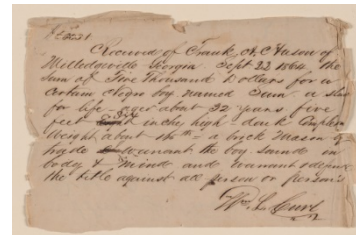 Received of Frank, A, C Nason of
Milledgeville Georgia Sept 22 1864 the
sum of Five Thousand Dollars for a
certain Negro boy named Sam a slave
for life aged about 32 years five
feet inches high dark Complex
Weight about a brick Mason of
trade warant the boy sound in
body & Mind and warant & defend
the title against all person or person's
Wm L Curl